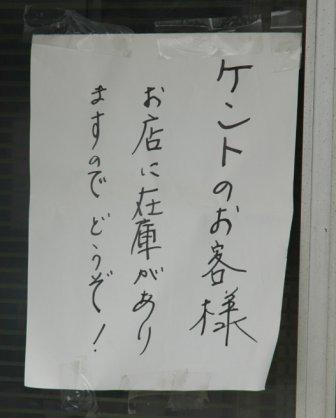 ケントのお客様
お店に在庫があり
ますのでどうぞ！